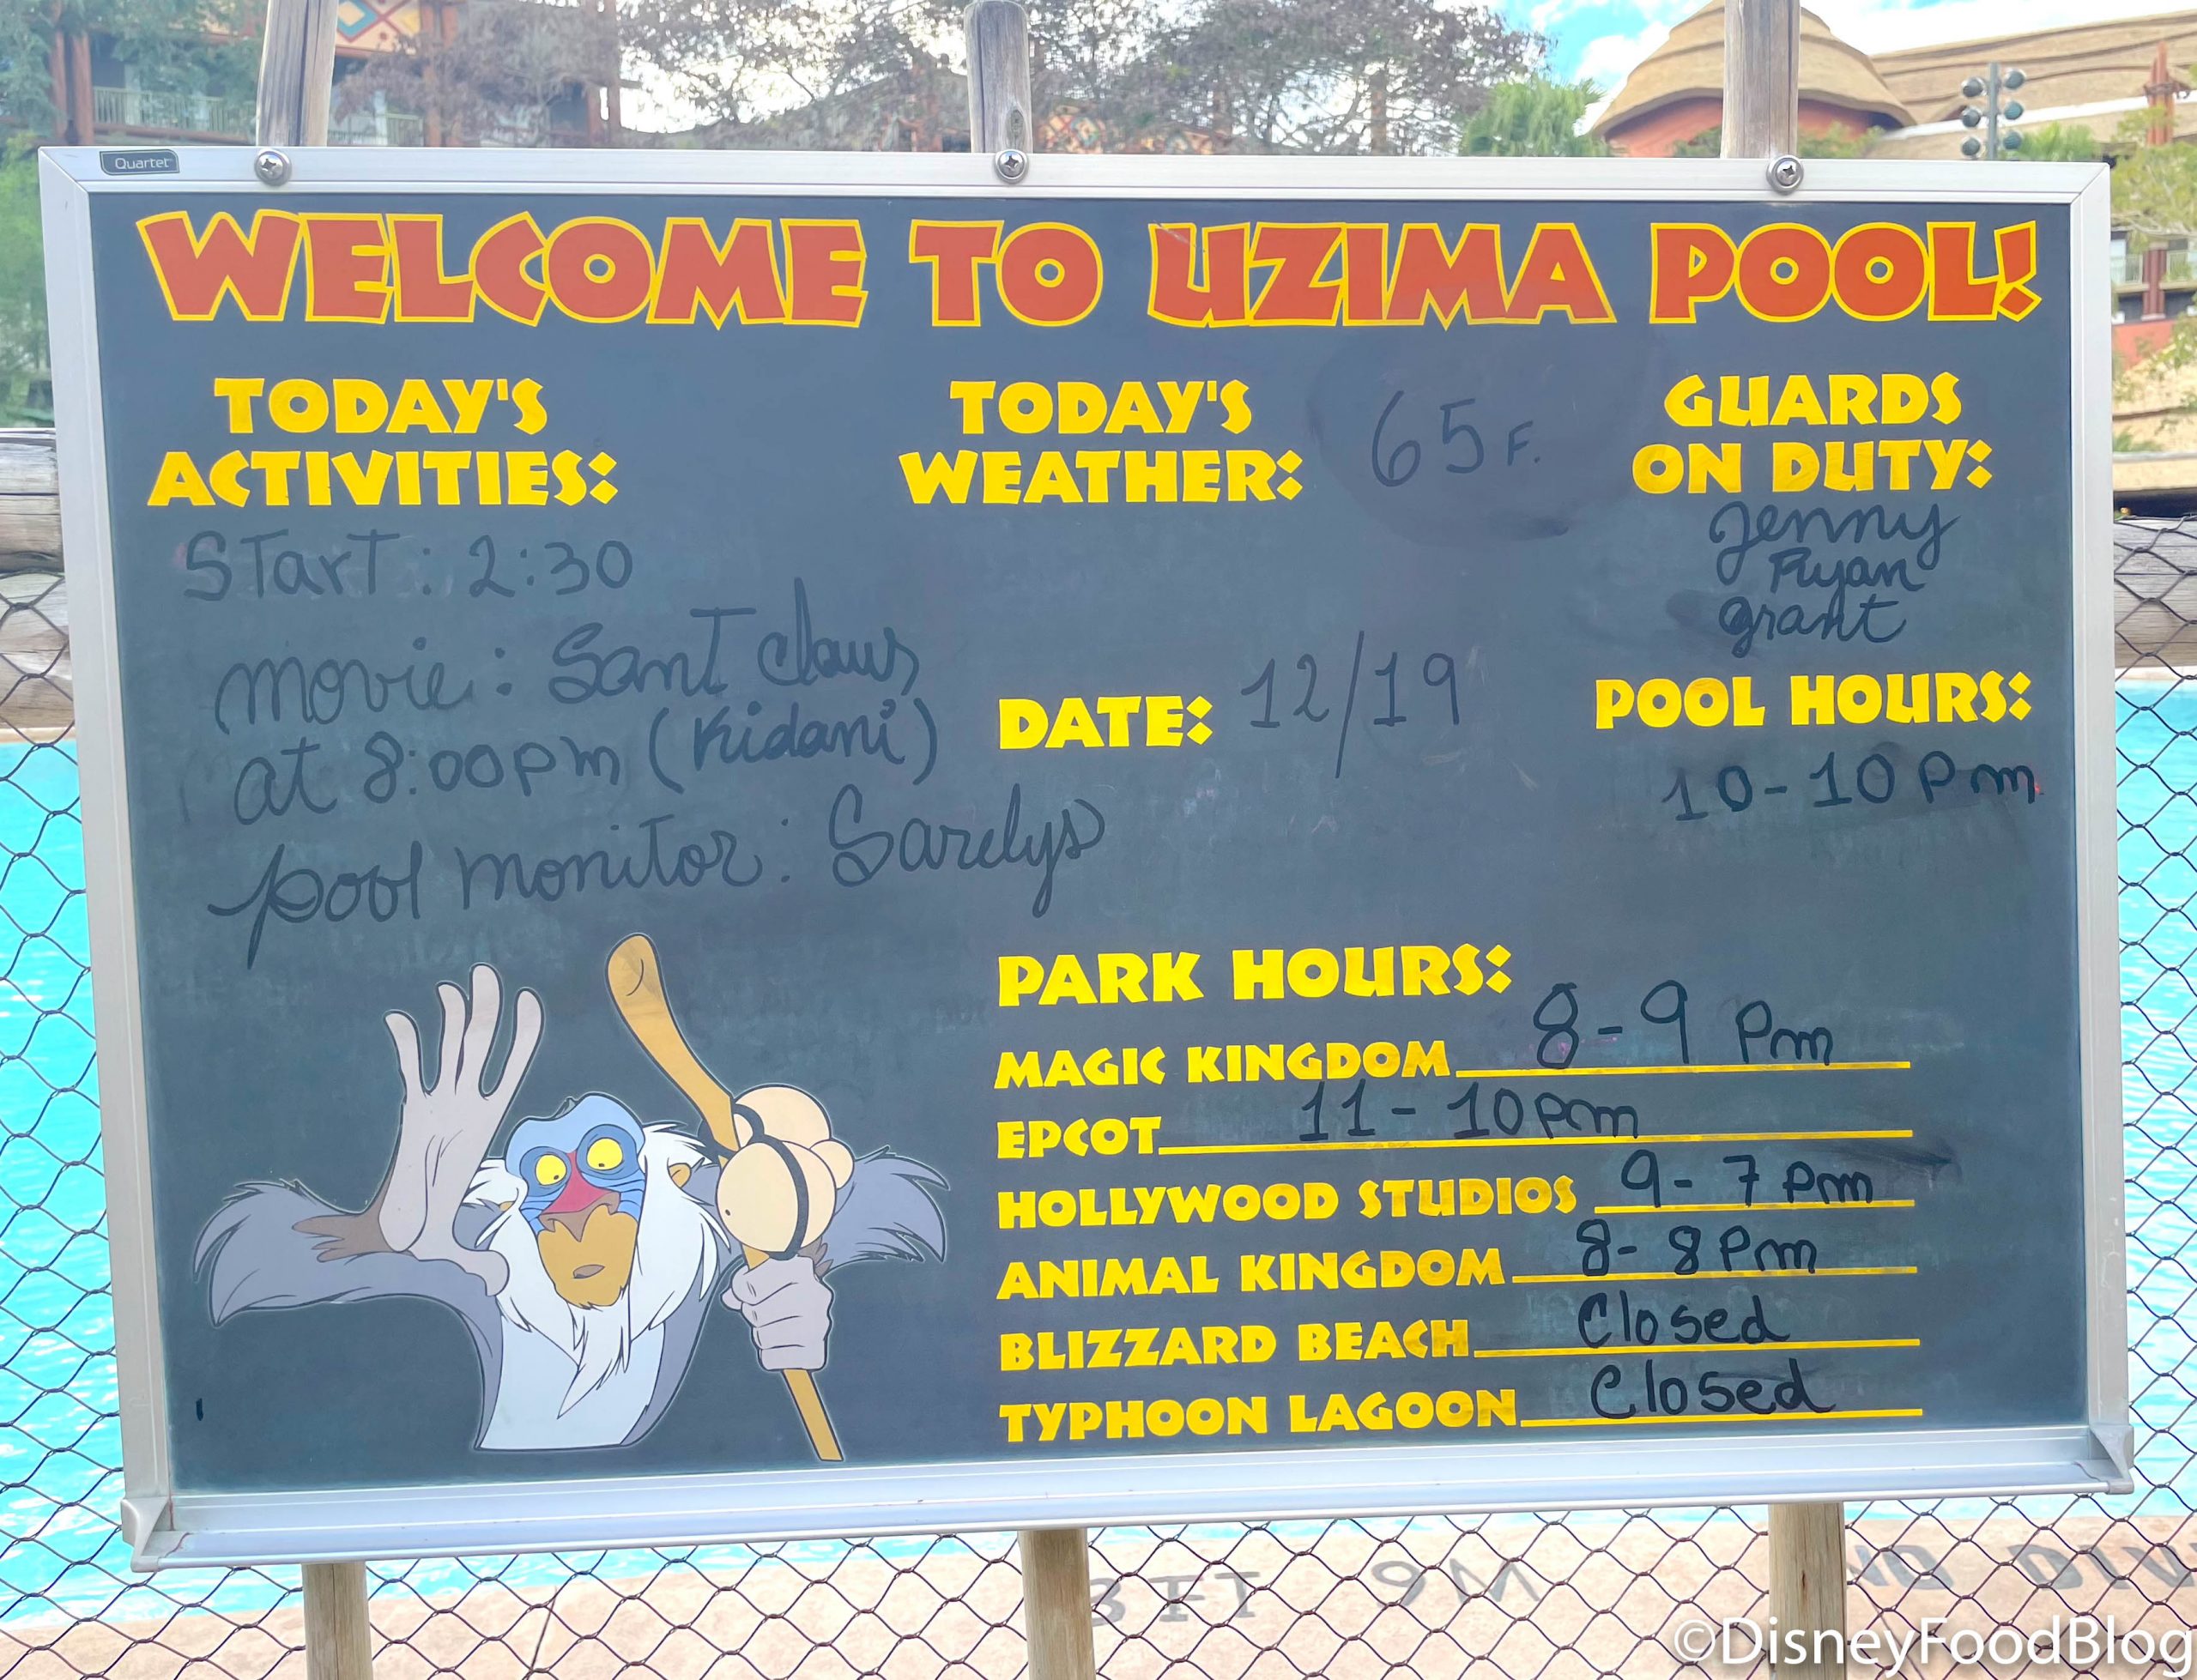 Quartet
WELCOME TO UZIMA POOL!
TODAY'S
ACTIVITIES:
Start: 2:30
movie: Sant Claus
at 8:00pm (Kidani)
pool monitor: Sarelys
TODAY'S
WEATHER: 65 F.
DATE: 12/19
GUARDS
ON DUTY:
Jenny
Ryan
grant
POOL HOURS:
10-10 Pm
PARK HOURS:
MAGIC KINGDOM 8-9 Pm
EPCOT 11-10pm
HOLLYWOOD STUDIOS 9-7 Pm
ANIMAL KINGDOM 8-8 Pm
BLIZZARD BEACH Closed
TYPHOON LAGOON Closed
©DisneyFoodBlog